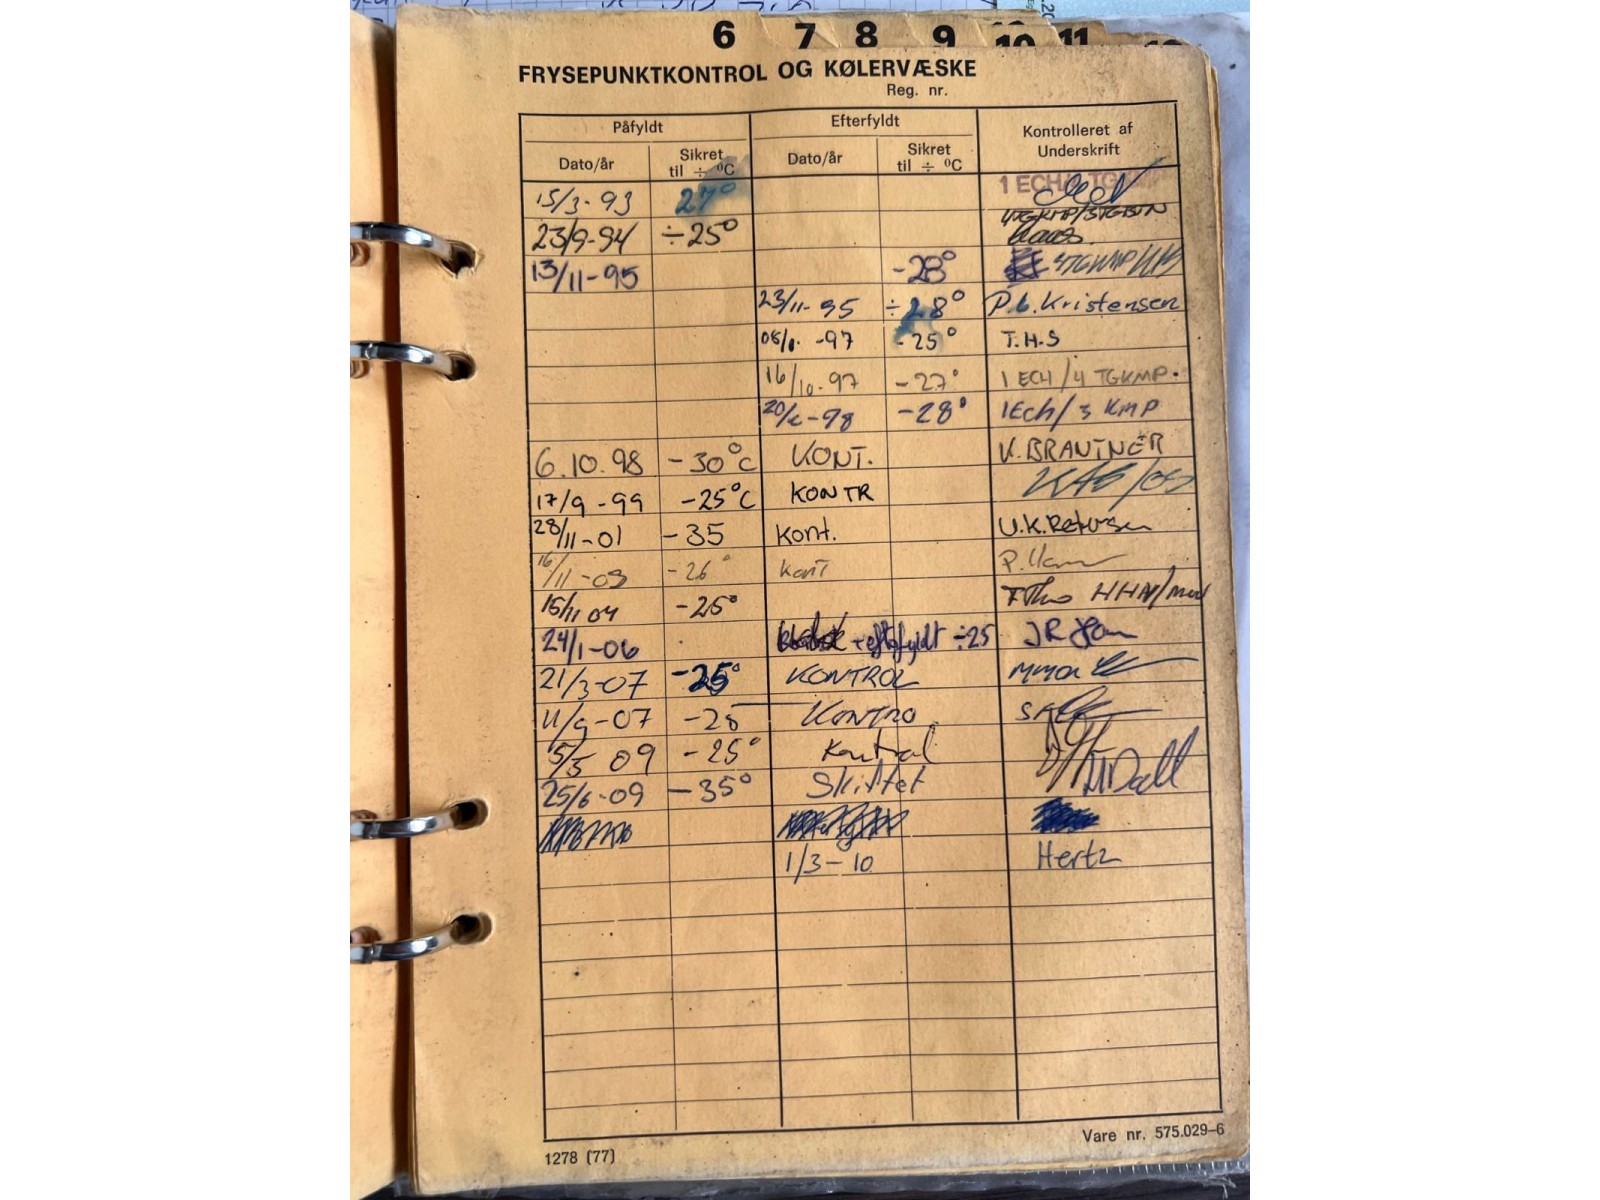 6 7 8 9 10 11
FRYSEPUNKTKONTROL OG KØLERVÆSKE
Reg. nr.
Påfyldt Efterfyldt Kontrolleret af Underskrift
Dato/år Sikret til ÷ ⁰C Dato/år Sikret til ÷ ⁰C
15/3-93 27° 1 ECH
23/9-94 ÷25°
13/11-95 -28° 4TGKMP
23/11-95 ÷28° P.L. Kristensen
-97 -25° T.H.S
16/10-97 -27° 1 ECH/4 TGKMP.
-98 -28° 1Ech/3 KMP
6.10.98 -30°C KONT. K.BRANTNER
17/9-99 -25°C KONTR
28/11-01 -35 Kont.
16/11-03 -26° kont
15/11 04 -25°
24/1-06 efterfyldt ÷25 JR
21/3-07 -25° KONTROL
11/9-07 -28 KONTRO
5/5 09 -25° Kontrol
25/6-09 -35° Skiftet Dall
1/3-10 Hertz
1278 (77)
Vare nr. 575.029-6